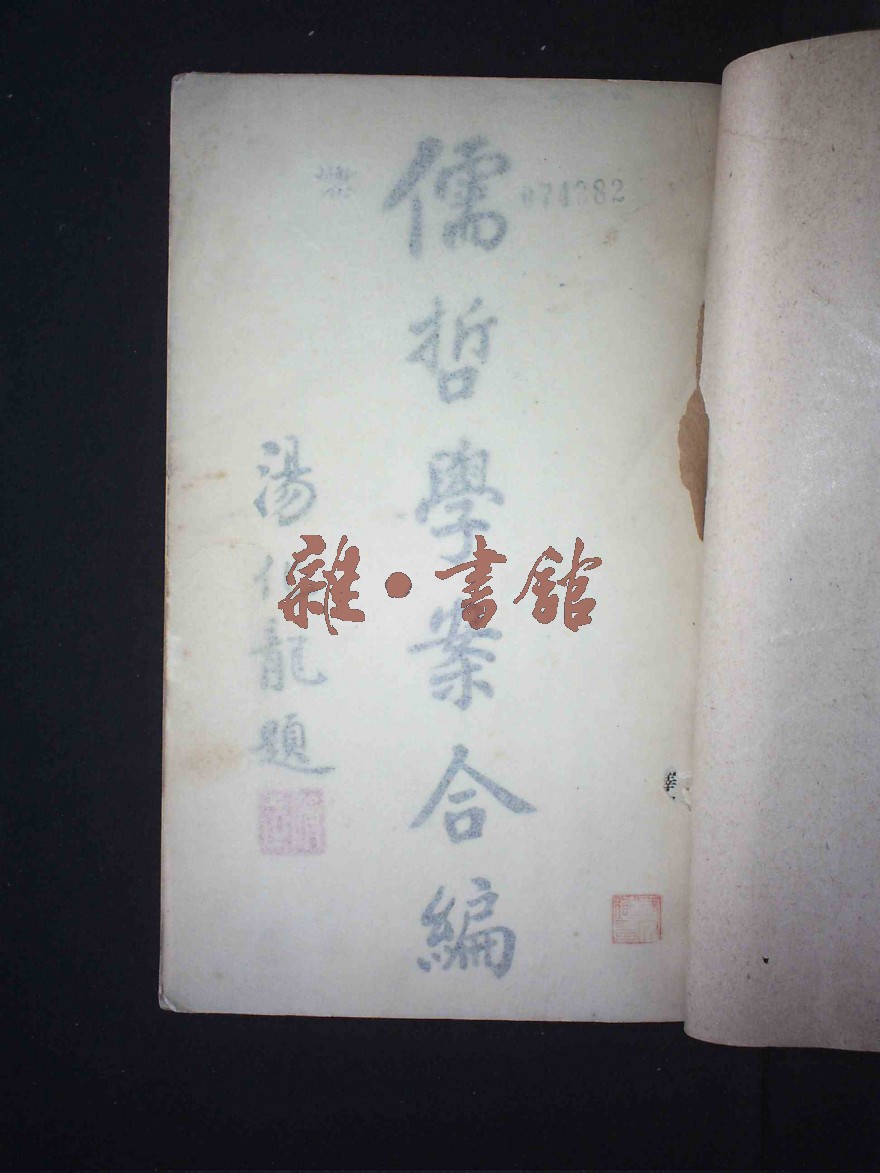 074382
儒哲學案合編
湯化龍題
雜·書館